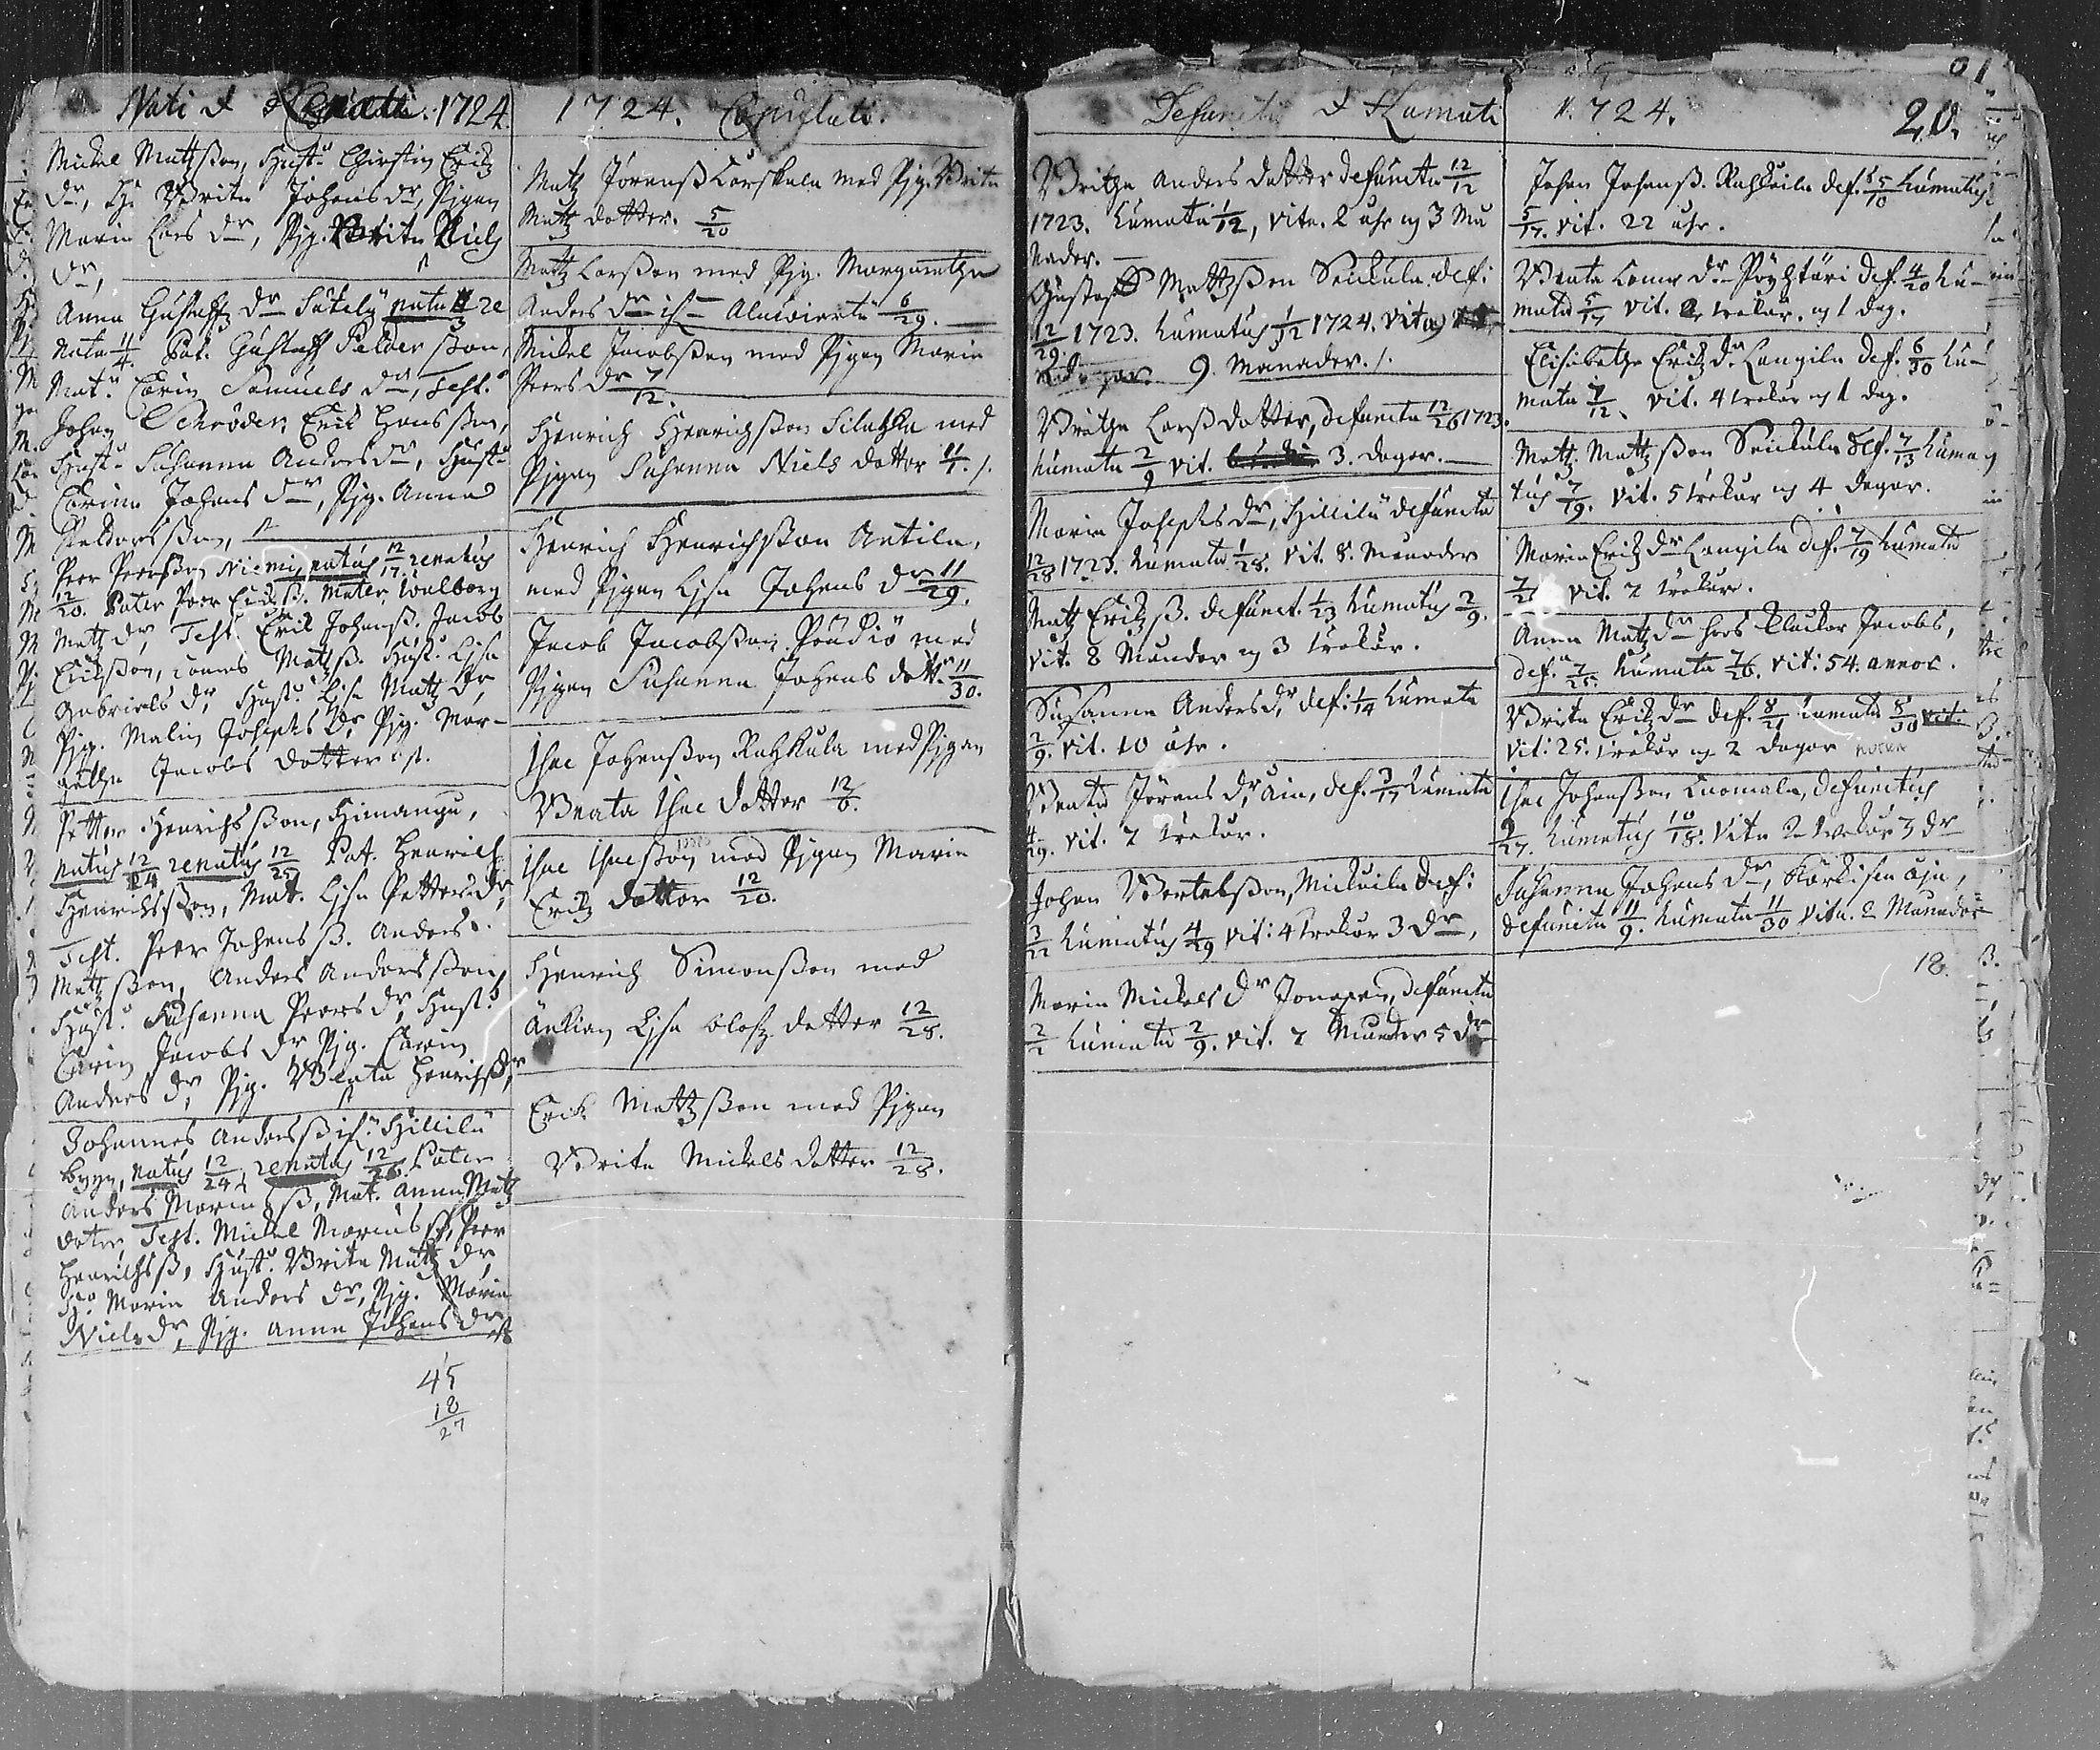 Nati & Renati. 1724.
Mickel Mattzßon, Hust. Chirstin Eritz
dr, H. Britu Johans dr, Pigan
Maria Lars dr, Pig. Brita Niels
dr,
Anna Gustaffz dr Sutelu nata 11/3 re
nata 11/4. Pat. Gustaff Pelderßon,
Mat. Carin Samuels dr, Test.
Johan Schröder, Erik Hansson,
Hust. Susanna Anders dr, Hust.
Carina Johans dr, Pig. Anna
Peldorsßon,
Peer Peersßon Niemi natus 12/17. renatus
12/20. Pater Peer Erickß. Mater Walborg
Matz dr, Test. Erik Johanß. Jacob
Erikßon, Mattzß. Hust. Lisa
Gabriels dr, Hust. Lisa Matz dr,
Pig. Malin Josephs dr, Pig. Mar-
gethe Jacobs dotter
Petter Henrichsßon, Himangu,
natus 12/24 renatus 12/25 Pat. Henrich
Henrichsßon, Mat. Lisa Petters dr,
Test. Peer Johansß. Anders
Mattzßon, Anders Andersßon,
Hust. Susanna Peers dr, Hust.
Carin Jacobs dr, Pig. Carin
Anders dr, Pig. Beata Henrichs dr,
Johannes Andersß Hillilä
byn, natus 12/24, renatus 12/26. Pater
Anders Mariusß, Mat. Anna Matz
doter, Test. Mickel Mariusß, Peer
Henrichsß, Hust. Brita Matz dr,
H. Maria Anders dr, Pig. Maria
Niels dr, Pig. Anna Johans dr
45
18
27
1724. Copulati.
Matz Jöransß Karskela med Pig. Brita
Matz dotter. 5/20
Matz Larsßon med Pig. Margaretha
Anders dr 6/29.
Mickel Jacobsßon med Pigan Maria
Peers dr 7/12.
Henrich Henrichsßon Silahka med
Pigan Susanna Niels dotter 11/1.
Henrich Henrichsßon Antila,
med Pigan Lisa Johans dr 11/29.
Jacob Jacobsßon Poudiö med
Pigan Susanna Johans dott. 11/30.
Isac Johansßon Rahkula med Pigan
Beata Isac dotter 12/6.
Isac Isacsßon med Pigan Maria
Eritz dotter 12/20.
Henrich Simonsßon med
Änkian Lisa Olofz dotter 12/28.
Erik Mattzßon med Pigan
Brita Mickels dotter 12/28.
Defuncti & Humati
Britha Anders dotter defuncta 12/12
1723. humata 1/12, vita. 2 åhr og 3 Må
nader.
Gustaff Mattzßon Seikula def:
12/29 1723. humatus 1/12 1724. vita
9. Månader.
Britha Larsdotter, defuncta 12/26 1723.
humata 2/9 vit. 3. dagar.
Maria Josephs dr, Hillilä defuncta
12/28 1723. humata 1/28. vit. 8. Månader
Matz Eritzß. defunct. 1/23 humatus 2/9.
vit. 8 Månader og 3 wekor.
Susanna Anders dr, def: 1/14 humata
2/9. vit. 10 åhr.
Beata Jörans dr, def. 3/17 humata
4/29. vit. 7 wekor.
Johan Bertelsßon, Mickeila def:
3/22 humatus 4/29 vit: 4 wekor 3 dr,
Maria Mickels dr defuncta
2/2 humata 2/9. vit. 7 Månader 5 dr
1724.
20.
Johan Johansß. Rahkoila def. 5/10 humatus
5/17. vit. 22 åhr.
Beata dr Pöyhtäri def. 4/20 hu-
mata 5/17 vit. 2 wekor. og 1 dag.
Elisabetha Eritz dr Langila def. 6/30 hu-
mata 7/12, vit. 4 wekor og 1 dag.
Mattz Mattzßon Seikula def. 7/13 huma
tus 7/19. vit. 5 wekor og 4 dagar.
Maria Eritz dr Langila def. 7/19 humata
vit. 7 wekor.
Anna Matz dr hoos klockar Jacobs,
def. 7/25. humata 7/26. vit: 54. annos.
Brita Eritz dr def. 8/21 humata 8/30
vit: 25. wekor og 2 dagar
Isac Johansßon Tuomala, defunctus
9/27. humatus 10/18. vita 2 wekor 3 dr
Susanna Johans dr, Korkisen oja,
defuncta 11/9. humata 11/30 vita. 2 Månader
18.